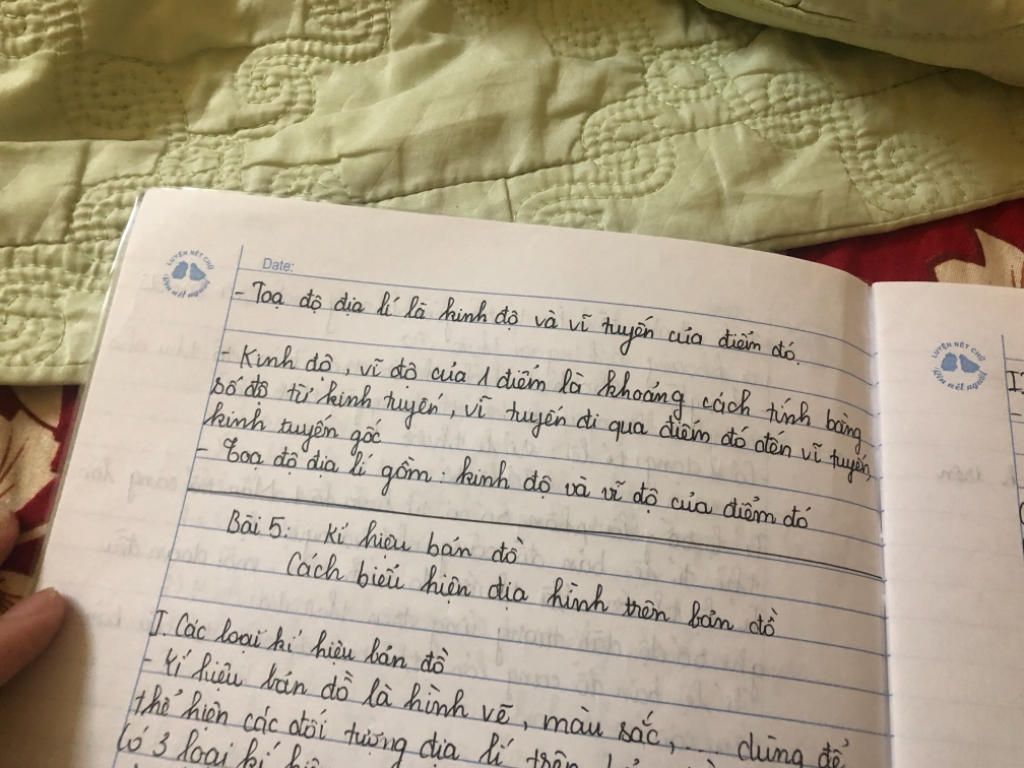 LUYỆN NÉT CHỮ
Rèn nết người
Date:
- Toạ độ địa lí là kinh độ và vĩ tuyến của điểm đó.
- Kinh độ, vĩ độ của 1 điểm là khoảng cách tính bằng
số độ từ kinh tuyến, vĩ tuyến đi qua điểm đó đến vĩ tuyến,
kinh tuyến gốc
- Toạ độ địa lí gồm: kinh độ và vĩ độ của điểm đó
Bài 5: Kí hiệu bản đồ
Cách biểu hiện địa hình trên bản đồ
I. Các loại kí hiệu bản đồ
- Kí hiệu bản đồ là hình vẽ, màu sắc, ... dùng để
thể hiện các đối tượng địa lí trên
Có 3 loại kí
LUYỆN NÉT CHỮ
Rèn nết người